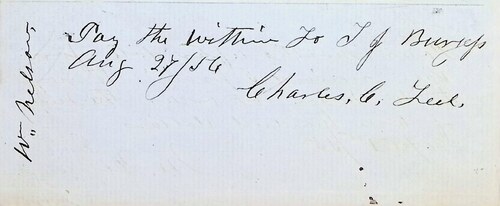 Pay the within to T J Burgess
Aug 27/56
Charles. C. Teel.
Wm Nelson